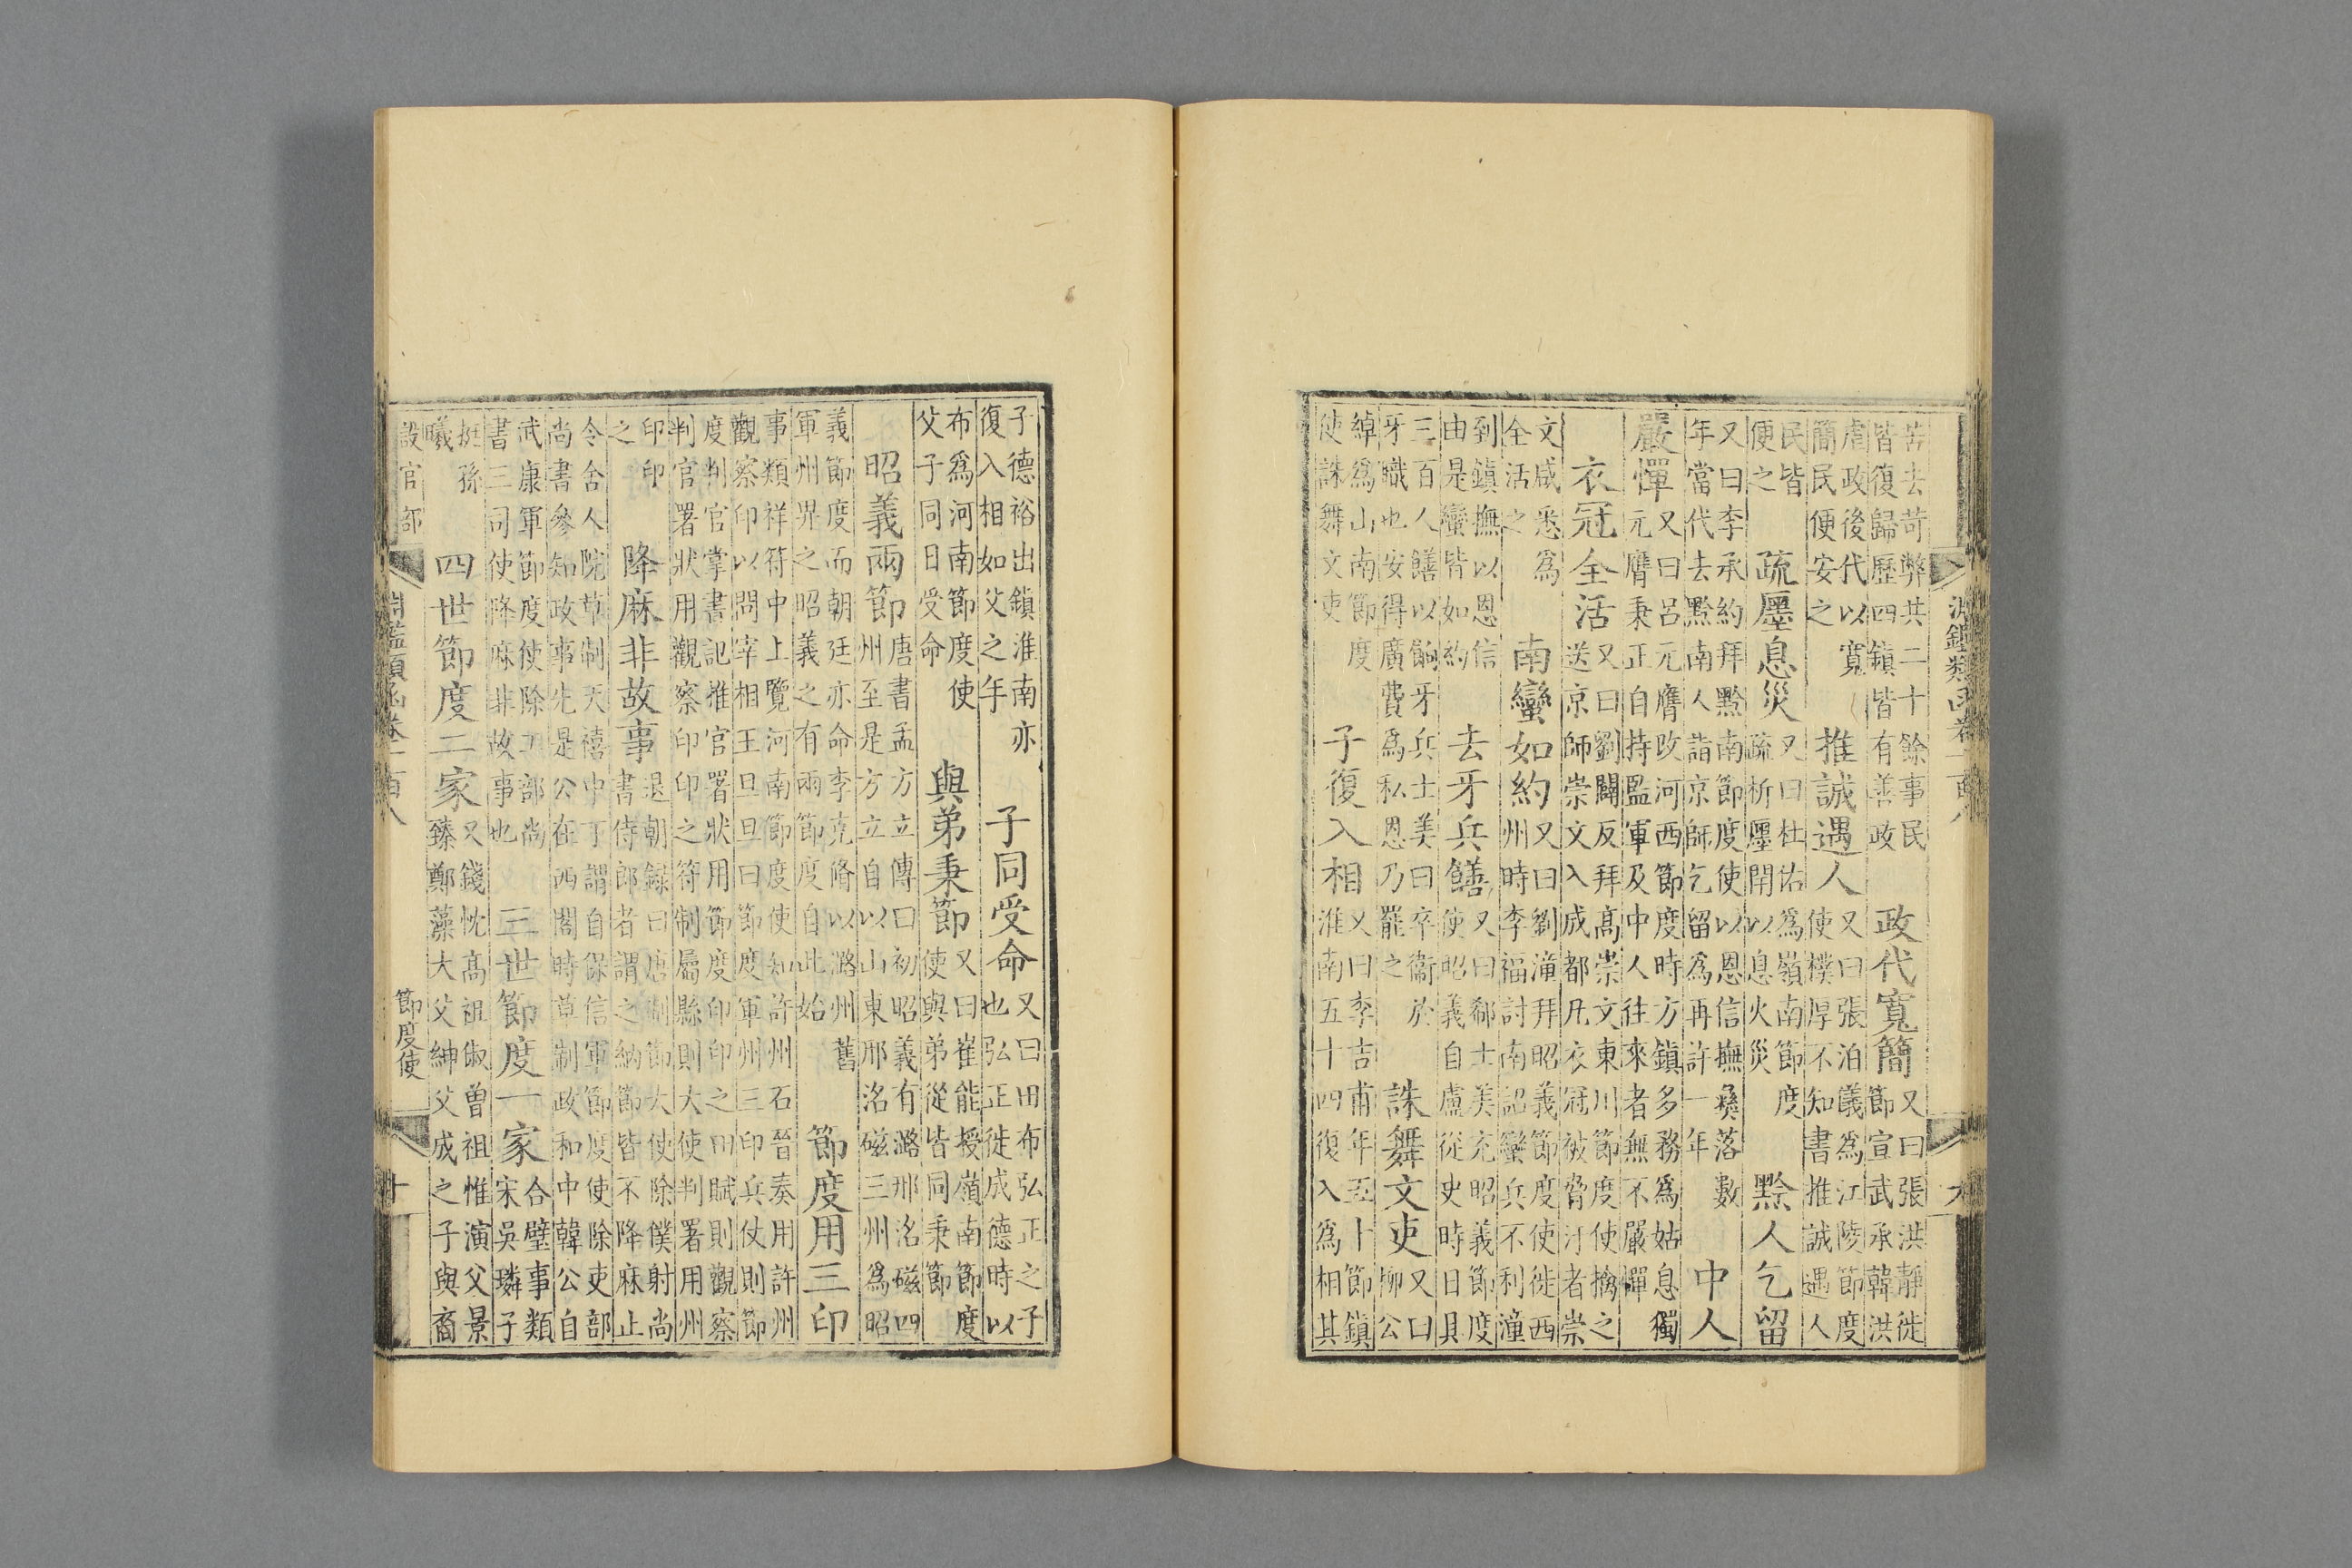 淵鑑類函卷一百八
苦去苛弊共二十餘事民
皆復歸歷四鎮皆有善政
政代寬簡
又曰張洪靜徙
節宣武承韓洪
虐政後代以寬
簡民便安之
推誠遇人
又曰張泊儀為江陵節度
使樸厚不知書推誠遇人
民皆
便之
疏廛息災
又曰杜佑為嶺南節度
疏析廛閈以息火災
黔人乞留
又曰李承約拜黔南節度使以恩信撫彝落數
年當代去黔南人詣京師乞留為再許一年
中人
嚴憚
又曰呂元膺改河西節度時方鎮多務為姑息獨
元膺秉正自持監軍及中人往來者無不嚴憚
衣冠全活
又曰劉闢反拜高崇文東川節度使擒之
送京師崇文入成都凡衣冠被脅汙者崇
文咸悉為
全活之
南蠻如約
又曰劉潼拜昭義節度使徙西
州時李福討南詔蠻兵不利潼
到鎮撫以恩信
由是蠻皆如約
去牙兵饍
又曰郗士美充昭義節度
使昭義自盧從史時日具
三百人饍以餉牙兵士美曰卒衞於
牙職也安得廣費為私恩乃罷之
誅舞文吏
又曰
柳公
綽為山南節度
使誅舞文吏
子復入相
又曰李吉甫年五十節鎮
淮南五十四復入為相其
子德裕出鎮淮南亦
復入相如父之年
子同受命
又曰田布弘正之子
也弘正徙成德時以
布為河南節度使
父子同日受命
與弟秉節
又曰崔能授嶺南節度
使與弟從皆同秉節
昭義兩節
唐書孟方立傳曰初昭義有潞邢洺磁四
州至是方立自以山東邢洺磁三州為昭
義節度而朝廷亦命李克脩以潞州舊
軍州界之昭義之有兩節度自此始
節度用三印
事類祥符中上覽河南節度使知許州石晉奏用許州
觀察印以問宰相王旦旦曰節度軍州三印兵仗則節
度判官掌書記推官署狀用節度印印之田賦則觀察
判官署狀用觀察印印之符制屬縣則大使判署用州
印印
之
降麻非故事
退朝録曰唐制節大使除僕射尚
書侍郎者謂之納節皆不降麻止
令舍人院草制天禧中丁謂自保信軍節度使除吏部
尚書參知政事先是公在西閣時草制政和中韓公自
武康軍節度使除工部尚
書三司使降麻非故事也
三世節度一家
合璧事類
宋吳璘子
挺孫
曦
四世節度二家
又錢忱高祖俶曾祖惟演父景
臻鄭藻大父紳父成之子與裔
設官部
節度使
淵鑑類函卷一百八
十